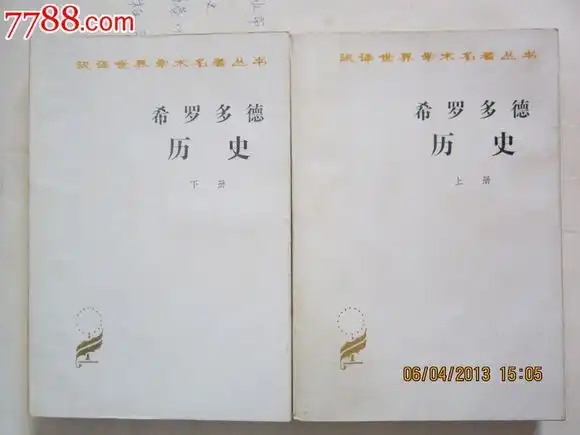 7788.com
汉译世界学术名著丛书
希罗多德
历史
下册
汉译世界学术名著丛书
希罗多德
历史
上册
06/04/2013 15:05